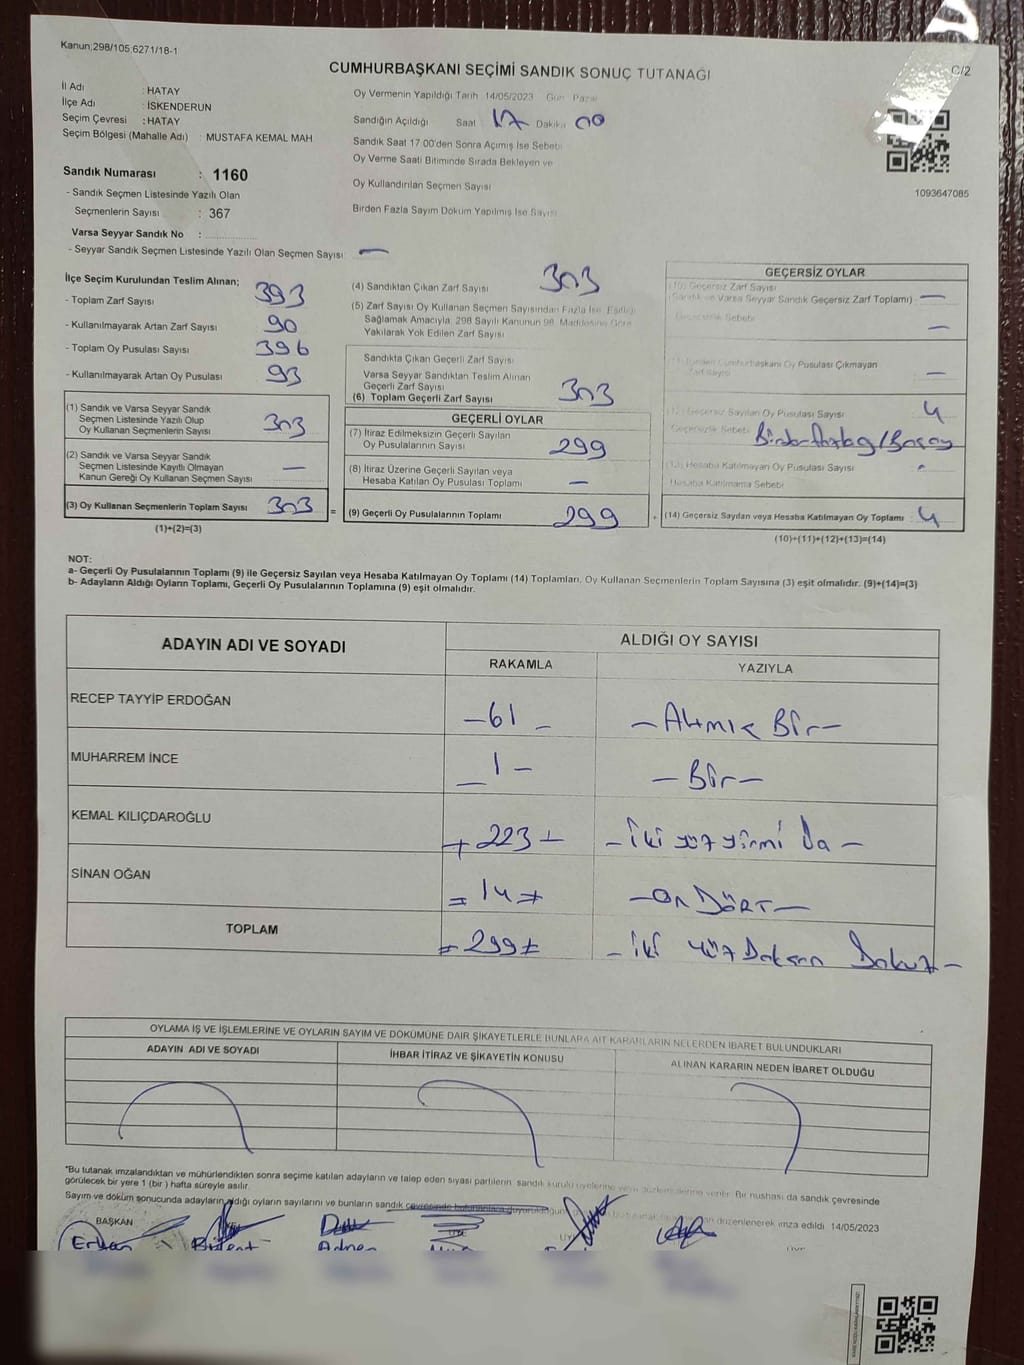 Kanun;298/105;6271/18-1
CUMHURBAŞKANI SEÇİMİ SANDIK SONUÇ TUTANAĞI
C/2
İl Adı : HATAY
İlçe Adı : İSKENDERUN
Seçim Çevresi : HATAY
Seçim Bölgesi (Mahalle Adı) : MUSTAFA KEMAL MAH
Sandık Numarası : 1160
- Sandık Seçmen Listesinde Yazılı Olan
Seçmenlerin Sayısı : 367
Varsa Seyyar Sandık No :
- Seyyar Sandık Seçmen Listesinde Yazılı Olan Seçmen Sayısı: —
Oy Vermenin Yapıldığı Tarih 14/05/2023 Gün Pazar
Sandığın Açıldığı Saat 17 Dakika 00
Sandık Saat 17.00'den Sonra Açımış İse Sebebi
Oy Verme Saati Bitiminde Sırada Bekleyen ve
Oy Kullandırılan Seçmen Sayısı
Birden Fazla Sayım Döküm Yapılmış İse Sayısı
1093647085
İlçe Seçim Kurulundan Teslim Alınan;
- Toplam Zarf Sayısı 393
- Kullanılmayarak Artan Zarf Sayısı 90
- Toplam Oy Pusulası Sayısı 396
- Kullanılmayarak Artan Oy Pusulası 93
(1) Sandık ve Varsa Seyyar Sandık
Seçmen Listesinde Yazılı Olup
Oy Kullanan Seçmenlerin Sayısı 303
(2) Sandık ve Varsa Seyyar Sandık
Seçmen Listesinde Kayıtlı Olmayan
Kanun Gereği Oy Kullanan Seçmen Sayısı —
(3) Oy Kullanan Seçmenlerin Toplam Sayısı 303 =
(1)+(2)=(3)
(4) Sandıktan Çıkan Zarf Sayısı 303
(5) Zarf Sayısı Oy Kullanan Seçmen Sayısından Fazla İse, Eşitliği
Sağlamak Amacıyla; 298 Sayılı Kanunun 98. Maddesine Göre
Yakılarak Yok Edilen Zarf Sayısı
Sandıkta Çıkan Geçerli Zarf Sayısı
Varsa Seyyar Sandıktan Teslim Alınan
Geçerli Zarf Sayısı
(6) Toplam Geçerli Zarf Sayısı 303
GEÇERLİ OYLAR
(7) İtiraz Edilmeksizin Geçerli Sayılan
Oy Pusulalarının Sayısı 299
(8) İtiraz Üzerine Geçerli Sayılan veya
Hesaba Katılan Oy Pusulası Toplamı —
(9) Geçerli Oy Pusulalarının Toplamı 299 +
GEÇERSİZ OYLAR
(10) Geçersiz Zarf Sayısı
(Sandık ve Varsa Seyyar Sandık Geçersiz Zarf Toplamı) —
Geçersizlik Sebebi —
Cumhurbaşkanı Oy Pusulası Çıkmayan
Zarf Sayısı —
(12) Geçersiz Sayılan Oy Pusulası Sayısı 4
Geçersizlik Sebebi
(13) Hesaba Katılmayan Oy Pusulası Sayısı
Hesaba Katılmama Sebebi
(14) Geçersiz Sayılan veya Hesaba Katılmayan Oy Toplamı 4
(10)+(11)+(12)+(13)=(14)
NOT:
a- Geçerli Oy Pusulalarının Toplamı (9) ile Geçersiz Sayılan veya Hesaba Katılmayan Oy Toplamı (14) Toplamları, Oy Kullanan Seçmenlerin Toplam Sayısına (3) eşit olmalıdır. (9)+(14)=(3)
b- Adayların Aldığı Oyların Toplamı, Geçerli Oy Pusulalarının Toplamına (9) eşit olmalıdır.
ADAYIN ADI VE SOYADI ALDIĞI OY SAYISI
RAKAMLA YAZIYLA
RECEP TAYYİP ERDOĞAN —61— —Altmış Bir—
MUHARREM İNCE —1— —Bir—
KEMAL KILIÇDAROĞLU 223 —iki yüz yirmi Üç—
SİNAN OĞAN =14= —On DÖRT—
TOPLAM =299= —iki yüz Doksan Dokuz—
OYLAMA İŞ VE İŞLEMLERİNE VE OYLARIN SAYIM VE DÖKÜMÜNE DAİR ŞİKAYETLERLE BUNLARA AİT KARARLARIN NELERDEN İBARET BULUNDUKLARI
ADAYIN ADI VE SOYADI İHBAR İTİRAZ VE ŞİKAYETİN KONUSU ALINAN KARARIN NEDEN İBARET OLDUĞU
*Bu tutanak imzalandıktan ve mühürlendikten sonra seçime katılan adayların ve talep eden siyasi partilerin sandık kurulu üyelerine verilir. Bir nushası da sandık çevresinde
görülecek bir yere 1 (bir) hafta süreyle asılır.
Sayım ve döküm sonucunda adayların aldığı oyların sayılarını ve bunların sandık çevresinde düzenlenerek imza edildi. 14/05/2023
BAŞKAN
Erkan Bülent Adnan